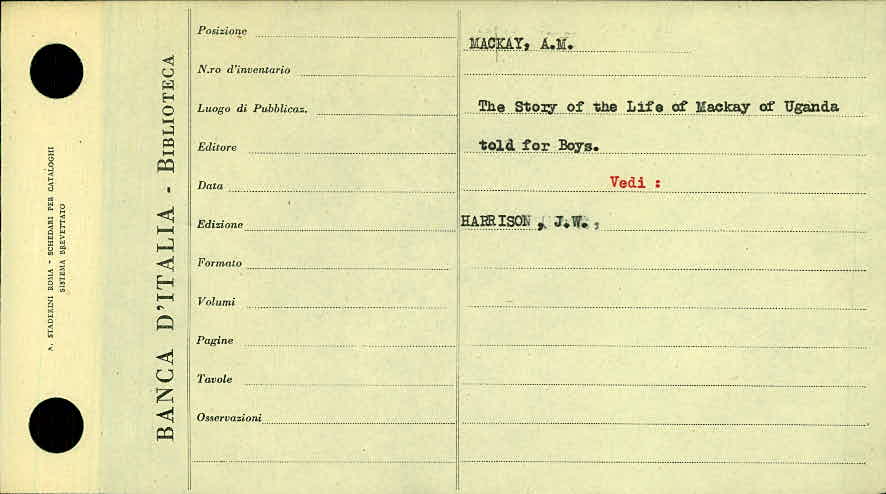 A. STADERINI ROMA - SCHEDARI PER CATALOGHI
SISTEMA BREVETTATO
BANCA D'ITALIA - BIBLIOTECA
Posizione
N.ro d'inventario
Luogo di Pubblicaz.
Editore
Data
Edizione
Formato
Volumi
Pagine
Tavole
Osservazioni
MACKAY, A.M.
The Story of the Life of Mackay of Uganda
told for Boys.
Vedi :
HARRISON , J.W. ,